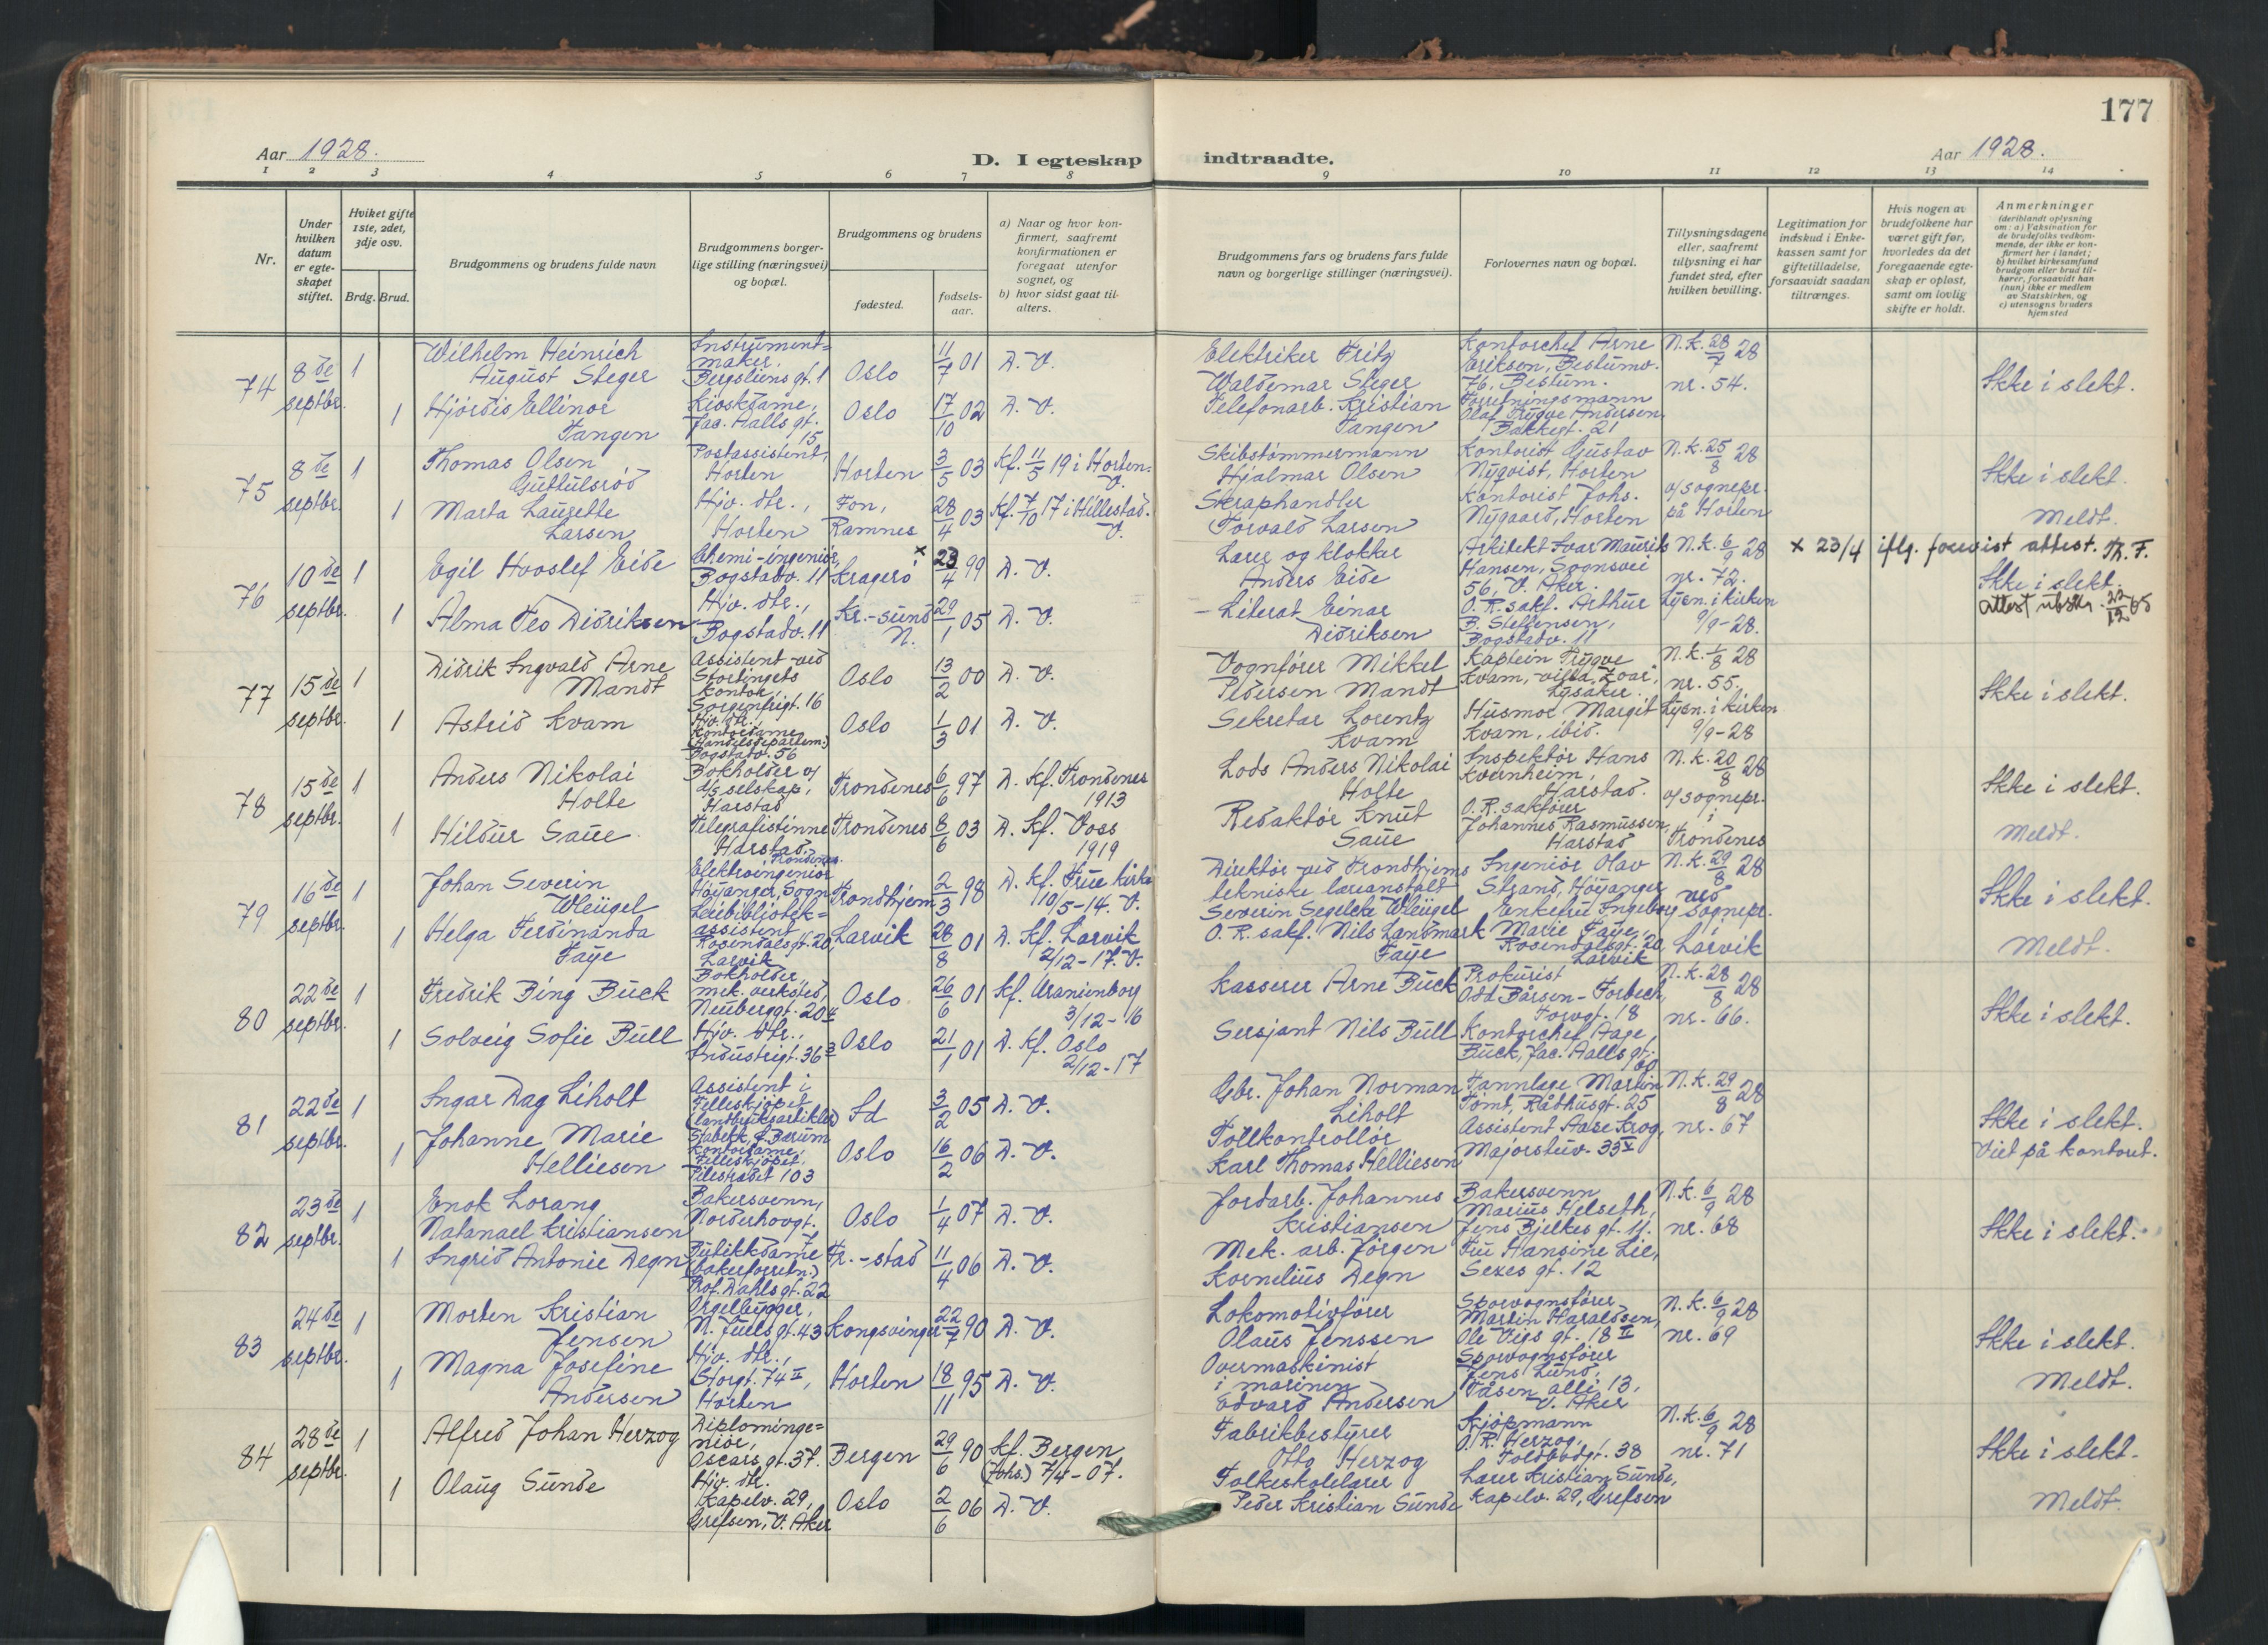 177
Aar 1928.
D. I egteskap indtraadte.
Aar 1928.
1 2 3 4 5 6 7 8 9 10 11 12 13 14
Nr.
Under
hvilken
datum
er egte-
skapet
stiftet.
Hviket gifte
1ste, 2det,
3dje osv.
Brdg. Brud.
Brudgommens og brudens fulde navn
Brudgommens borger-
lige stilling (næringsvei)
og bopæl.
Brudgommens og brudens
fødested.
fødsels-
aar.
a) Naar og hvor kon-
firmert, saafremt
konfirmationen er
foregaat utenfor
sognet, og
b) hvor sidst gaat til
alters.
Brudgommens fars og brudens fars fulde
navn og borgerlige stillinger (næringsvei).
Forlovernes navn og bopæl.
Tillysningsdagene
eller, saafremt
tillysning ei har
fundet sted, efter
hvilken bevilling.
Legitimation for
indskud i Enke-
kassen samt for
giftetilladelse,
forsaavidt saadan
tiltrænges.
Hvis nogen av
brudefolkene har
været gift før,
hvorledes da det
foregaaende egte-
skap er opløst,
samt om lovlig
skifte er holdt.
Anmerkninger
(deriblandt oplysning
om: a) Vaksination for
de brudefolks vedkom-
mende, der ikke er kon-
firmert her i landet;
b) hvilket kirkesamfund
brudgom eller brud til-
hører, forsaavidt han
(hun) ikke er medlem
av Statskirken, og
c) utensogns bruders
hjemsted
74
8de
septbr.
1
Wilhelm Heinrich
August Steger
Instrument=
maker,
Bergsliens gt. 1
Oslo
11/7 01
D. V.
Elektriker Fritz
Waldemar Steger
Kontorchef Arne
Eriksen, Bestumv.
76, Bestum.
N.k. 28/7 28
nr. 54.
Ikke i slekt.
1
Hjørdis Ellinor
Tangen
Kioskdame,
Jac. Aalls gt.
15
Oslo
17/10 02
D. V.
Telefonarb. Kristian
Tangen
Forretningsmann
Olaf Trygve Andersen,
Bakkegt. 21
75
8de
septbr.
1
Thomas Olsen
Guttulsrød
Postassistent,
Horten
Horten
3/5 03
Kf. 11/5 19 i Horten.
V.
Skibstømmermann
Hjalmar Olsen
Kontorist Gustav
Nyqvist, Horten
N.k. 25/8 28
v/sognepr.
på Horten
Ikke i slekt.
Meldt.
1
Marta Laurette
Larsen
Hjv. dtr.,
Horten
Fon,
Ramnes
28/4 03
Kf. 7/10 17 i Hillestad.
V.
Skraphandler
Torvald Larsen
Kontorist Johs.
Nygaard, Horten
76
10de
septbr.
1
Egil Hvoslef Eide
Chemi-ingeniør,
Bogstadv. 11
Kragerø
x 23/4 99
D. V.
Lærer og klokker
Anders Eide
Arkitekt Ivar Maurits
Hansen, Sognsvei
56, V. Aker.
N.k. 6/9 28
nr. 72.
Lysn. i kirken
9/9-28.
x 23/4 iflg. forevist attest. Th. F.
Ikke i slekt.
attest utstkr. 22/12 65
1
Alma Teo Didriksen
Hjv. dtr.,
Bogstadv. 11
Kr.-sund
N.
29/1 05
D. V.
Literat Einar
Didriksen
O.R.sakf. Arthur
B. Steffensen,
Bogstadv. 11
77
15de
septbr.
1
Didrik Ingvald Arne
Mandt
Assistent ved
Stortingets
kontor,
Sorgenfrigt. 16
Oslo
13/2 00
D. V.
Vognfører Mikkel
Pedersen Mandt
Kaptein Trygve
Kvam, villa "Zoar",
Lysaker.
N.k. 1/8 28
nr. 55.
Lysn. i kirken
9/9-28
Ikke i slekt.
1
Astrid Kvam
Hjv. dtr.,
Kontordame
(Handelsdepartem.)
Bogstadv. 56
Oslo
1/3 01
D. V.
Sekretær Lorentz
Kvam
Husmor Margit
Kvam, ibid.
78
15de
septbr.
1
Anders Nikolai
Holte
Bokholder v/
d/s selskap,
Harstad
Trondenes
6/6 97
D. Kf. Trondenes
1913
Lods Anders Nikolai
Holte
Inspektør Hans
Kvernheim,
Harstad.
N.k. 20/8 28
v/sognepr.
i
Trondenes
Ikke i slekt.
Meldt.
1
Hildur Saue
Telegrafistinne
Harstad,
Trondenes.
Trondenes
8/6 03
D. Kf. Voss
1919
Redaktør Knut
Saue
O.R.sakfører
Johannes Rasmussen,
Harstad
79
16de
septbr.
1
Johan Severin
Wleügel
Elektroingeniør
Høyanger, Sogn
Trondhjem
2/3 98
D. Kf. Frue kirke
10/5-14. V.
Direktør ved Trondhjems
tekniske læreanstalt
Severin Segelcke Wleügel
Ingeniør Olav
Strand, Høyanger
N.k. 29/8 28
ved
sognepr.
i
Larvik
Ikke i slekt.
Meldt.
1
Helga Ferdinanda
Faye
Leiebibliotek=
assistent
Rosendalsgt. 20,
Larvik
Larvik
28/8 01
D. Kf. Larvik
2/12-17. V.
O.R.sakf. Nils Landmark
Faye
Enkefru Ingeborg
Marie Faye,
Rosendalsgt. 20,
Larvik
80
22de
septbr.
1
Fredrik Bing Buck
Bokholder,
mek. verksted,
Neuberggt. 20 4
Oslo
26/6 01
Kf. Uranienborg
3/12-16
Kasserer Arne Buck
Prokurist
Odd Bårsen-Torbech,
Torvgt. 18
N.k. 28/8 28
nr. 66.
Ikke i slekt.
1
Solveig Sofie Bull
Hjv. dtr.,
Industrigt. 36 3
Oslo
21/1 01
D. Kf. Oslo
2/12-17
Sersjant Nils Bull
Kontorchef Aage
Buck, Jac. Aalls gt.
60
81
22de
septbr.
1
Ingar Dag Liholt
Assistent i
Felleskjøpet
(landbruksartikler)
Stabekk, V. Bærum
Id
3/2 05
D. V.
Gbr. Johan Norman
Liholt
Tannlæge Martin
Tomt, Rådhusgt. 25
N.k. 29/8 28
nr. 67
Ikke i slekt.
Viet på kontoret.
1
Johanne Marie
Helliesen
Kontordame,
Felleskjøpet,
Pilestrædet 103
Oslo
16/2 06
D. V.
Tollkontrollør
Karl Thomas Helliesen
Assistent Aase Krog,
Majorstuv. 33 V
82
23de
septbr.
1
Enok Lorang
Natanael Kristiansen
Bakersvenn,
Norderhovgt.
7
Oslo
1/4 07
D. V.
Jordarb. Johannes
Kristiansen
Bakersvenn
Marius Helseth,
Jens Bjelkes gt. 11.
N.k. 6/9 28
nr. 68
Ikke i slekt.
1
Ingrid Antonie Degn
Butikkdame
(bakerforretn.)
Prof. Dahls gt. 22
Fr.-stad
11/4 06
D. V.
Mek. arb. Jørgen
Kornelius Degn
Fru Hansine Lie,
Sexes gt. 12
83
24de
septbr.
1
Morten Kristian
Jensen
Orgelbygger,
N. Juels gt. 43
Kongsvinger
22/7 90
D. V.
Lokomotivfører
Olaus Jenssen
Sporvognsfører
Martin Haraldsen,
Ole Vigs gt. 18 II
N.k. 6/9 28
nr. 69
Ikke i slekt.
Meldt.
1
Magna Josefine
Andersen
Hjv. dtr.,
Storgt. 74 II,
Horten
Horten
18/11 95
D. V.
Overmaskinist
i marinen
Edvard Andersen
Sporvognsfører
Jens Lund,
Tåsen allé 13,
V. Aker
84
28de
septbr.
1
Alfred Johan Herzog
Diplominge=
niør,
Oscars gt. 37.
Bergen
29/6 90
Kf. Bergen
(Johs.) 7/4-07.
Fabrikbestyrer
Otto Herzog
Kjøpmann
O. R. Herzog,
Toldbodgt. 38
N.k. 6/9 28
nr. 71
Ikke i slekt.
Meldt.
1
Olaug Sunde
Hjv. dtr.
Kapelv. 29,
Grefsen, V. Aker
Oslo
2/6 06
D. V.
Folkeskolelærer
Peder Kristian Sunde
Lærer Kristian Sunde,
Kapelv. 29, Grefsen